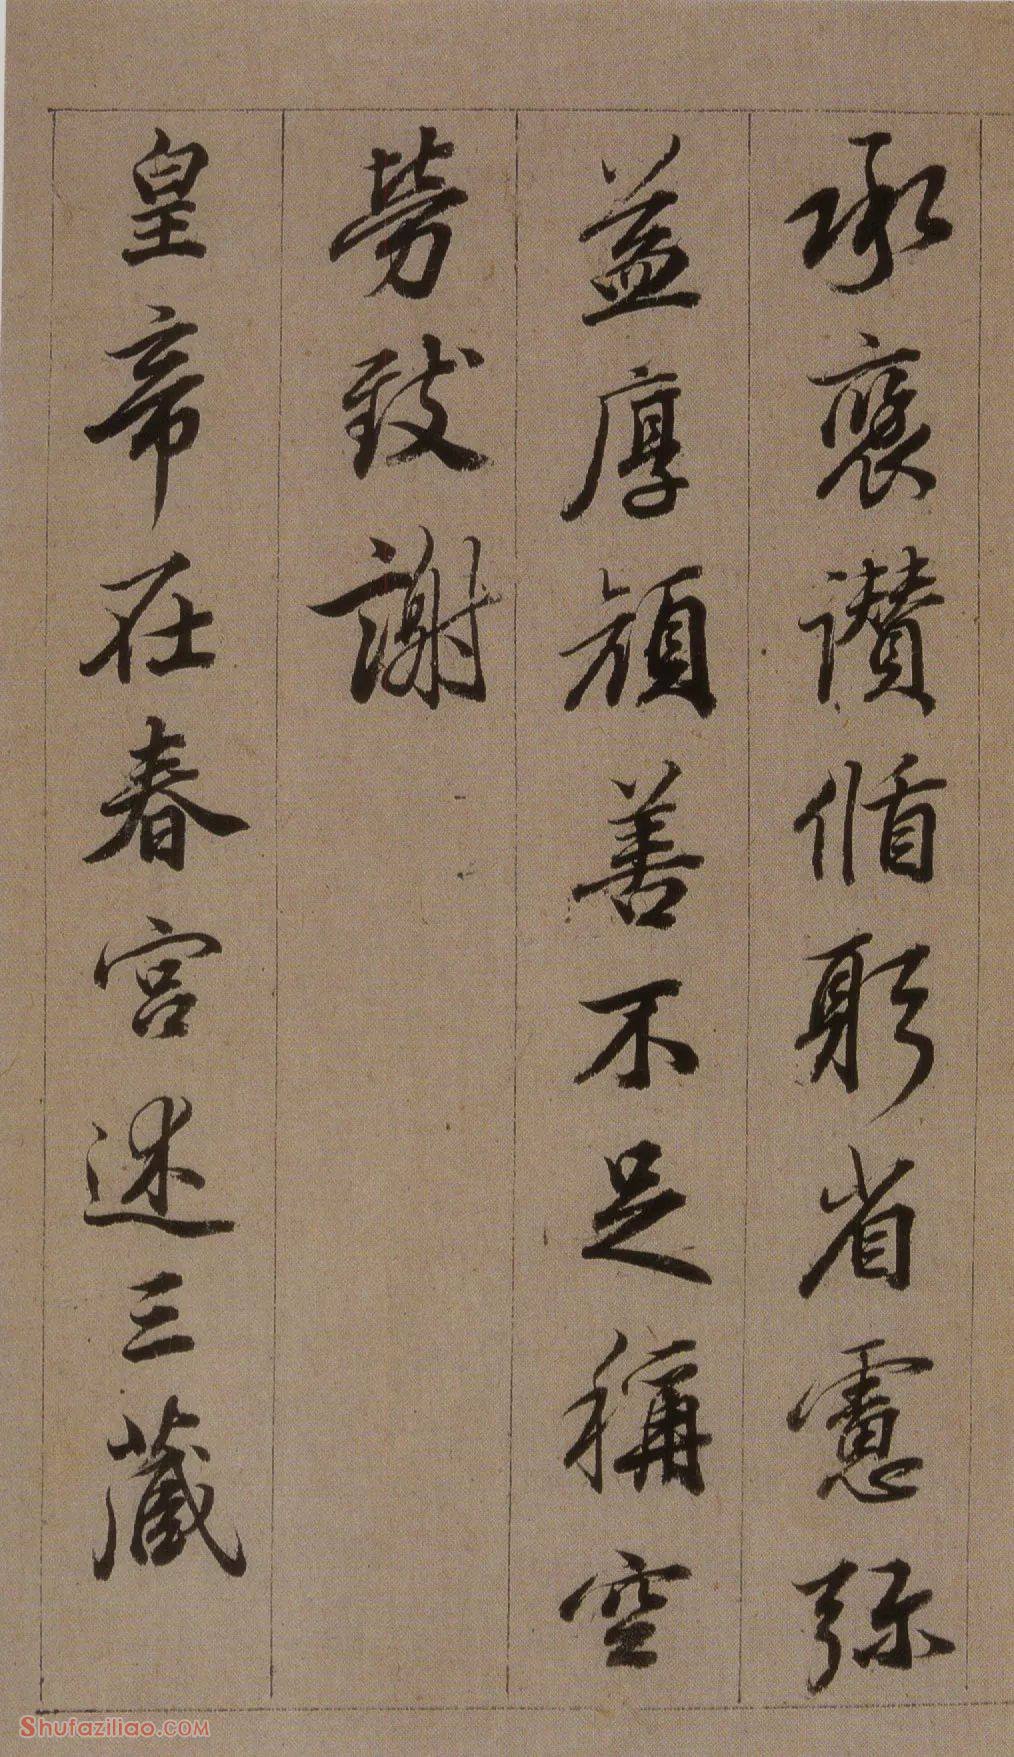 承襃讃循躬省慮弥
益厚顔善不足稱空
勞致謝
皇帝在春宮述三藏
Shufaziliao.COM